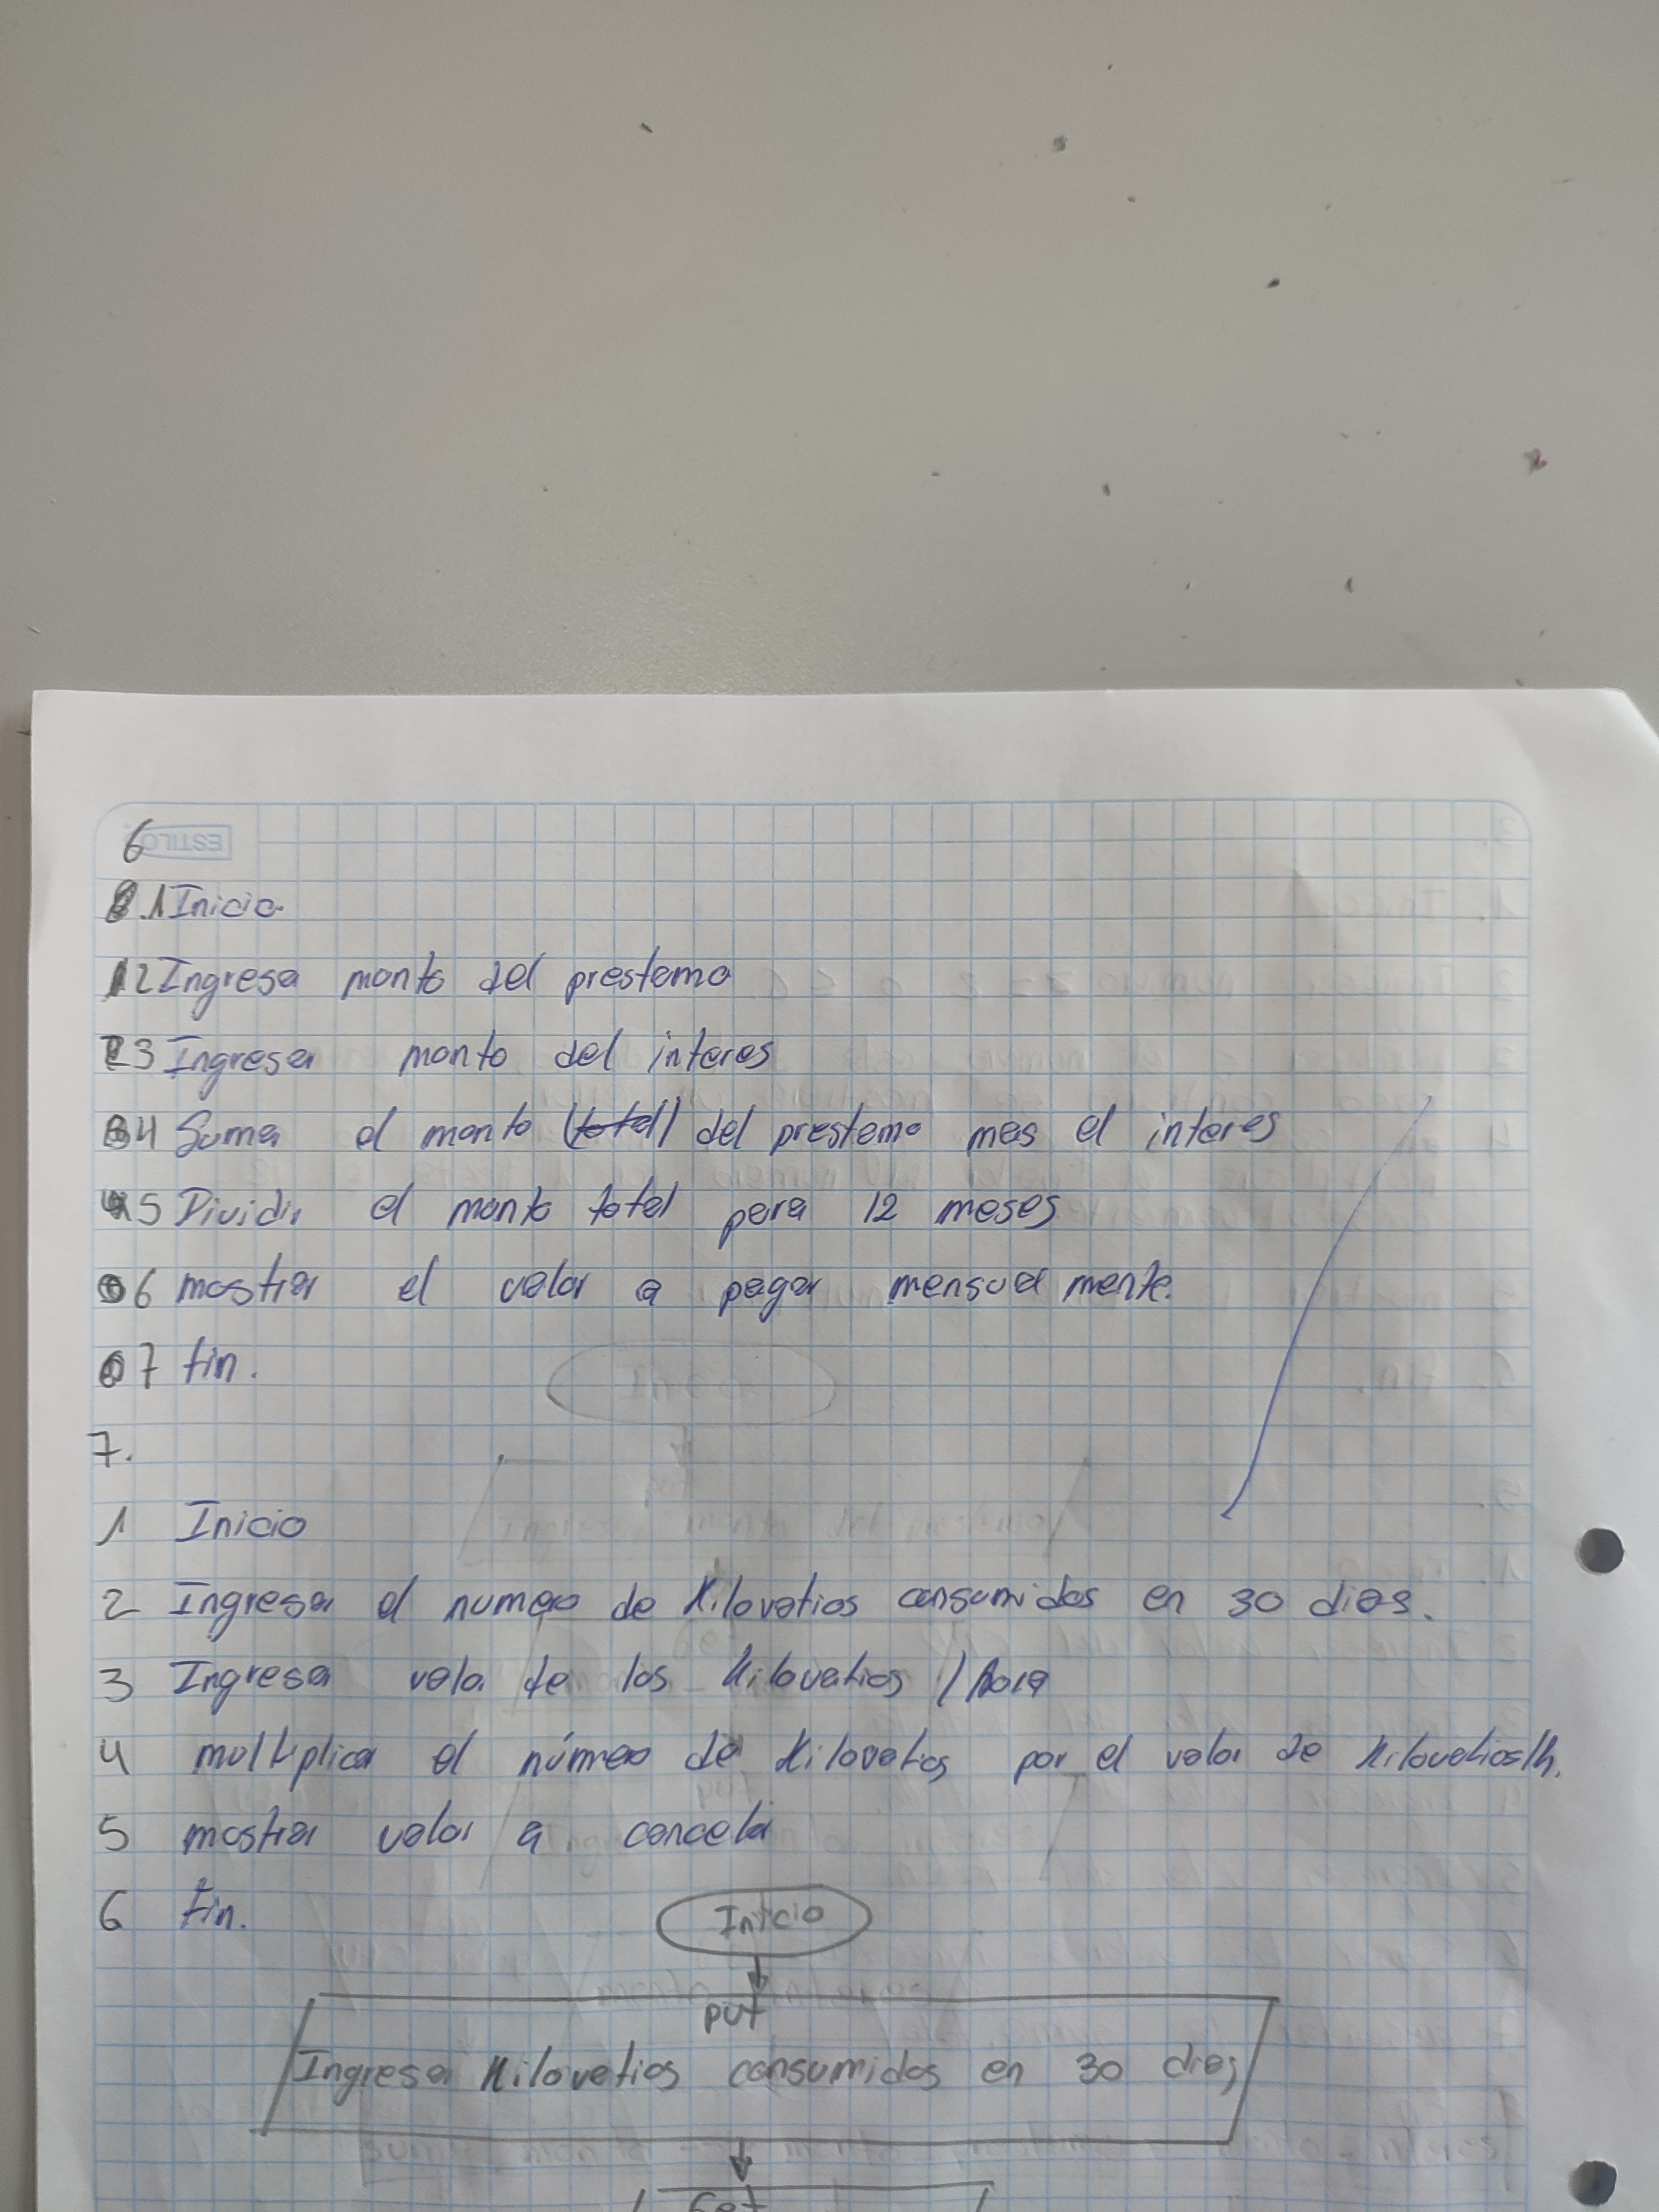 6
ESTILO
8.1 Inicio
12 Ingresa monto del prestamo
23 Ingresar monto del interes
34 Sumar el monto (total) del prestamo mas el interes
45 Dividir el monto total para 12 meses
56 mostrar el valor a pagar mensual mente.
67 fin.
7.
1 Inicio
2 Ingresar el numero de Kilovatios consumidos en 30 dias.
3 Ingresar valor de los Kilovatios / hora
4 multiplicar el número de Kilovatios por el valor de Kilovatios/h.
5 mostrar valor a cancelar
6 Fin.
Inicio
put
Ingresar Kilovatios consumidos en 30 dias
Get